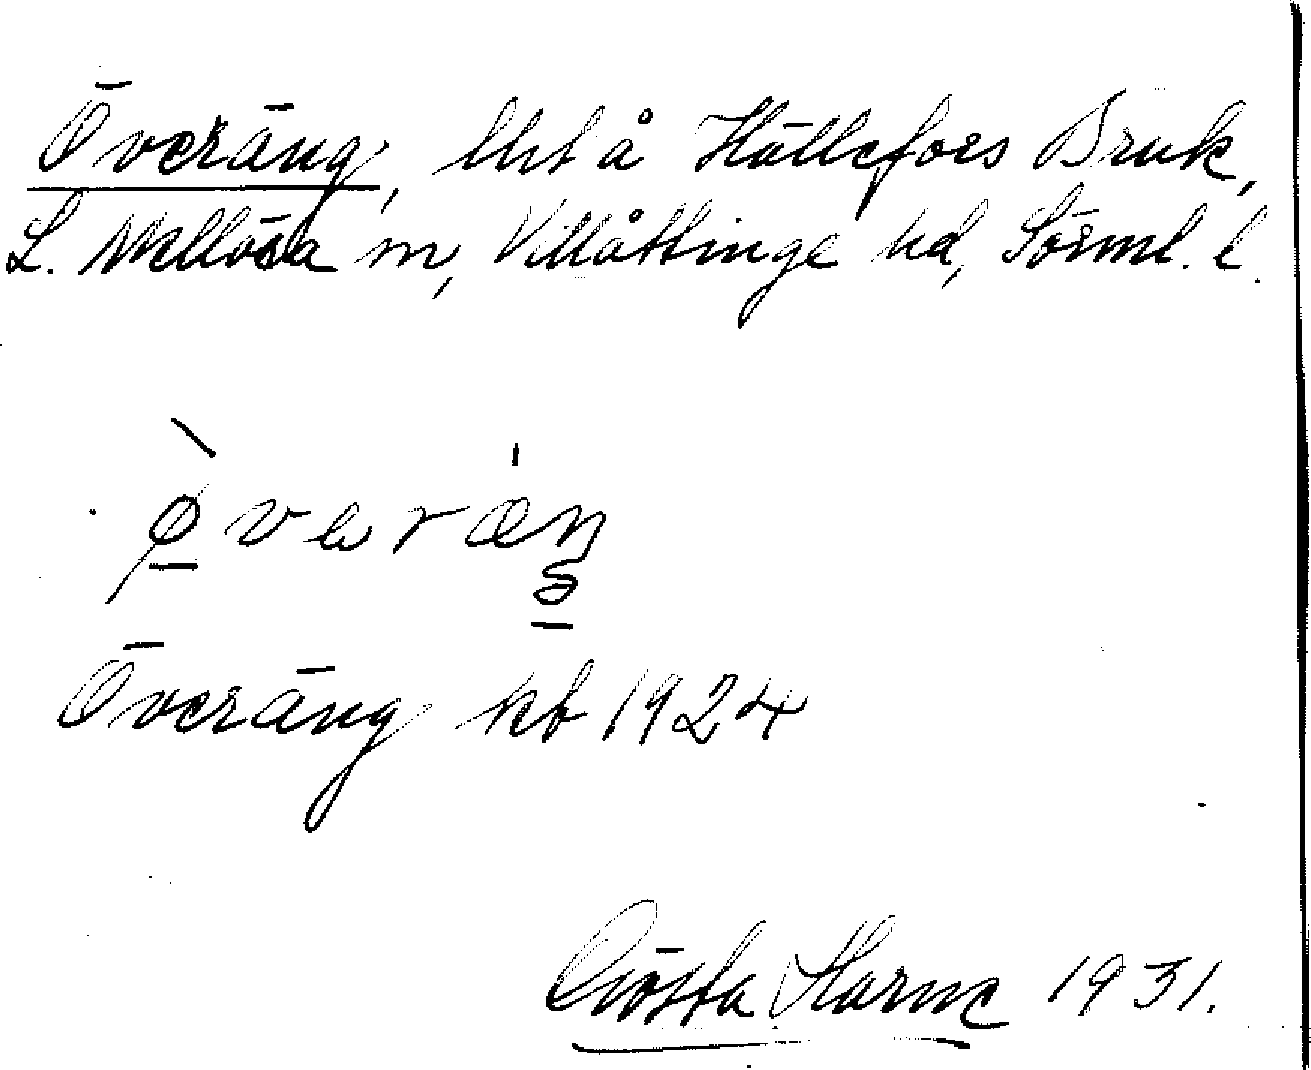 Överäng, lht å Hällefors Bruk,
L. Mellösa sn, Villåttinge hd, Sörml. l.
Överäng kb 1924
Gösta Harne 1931.